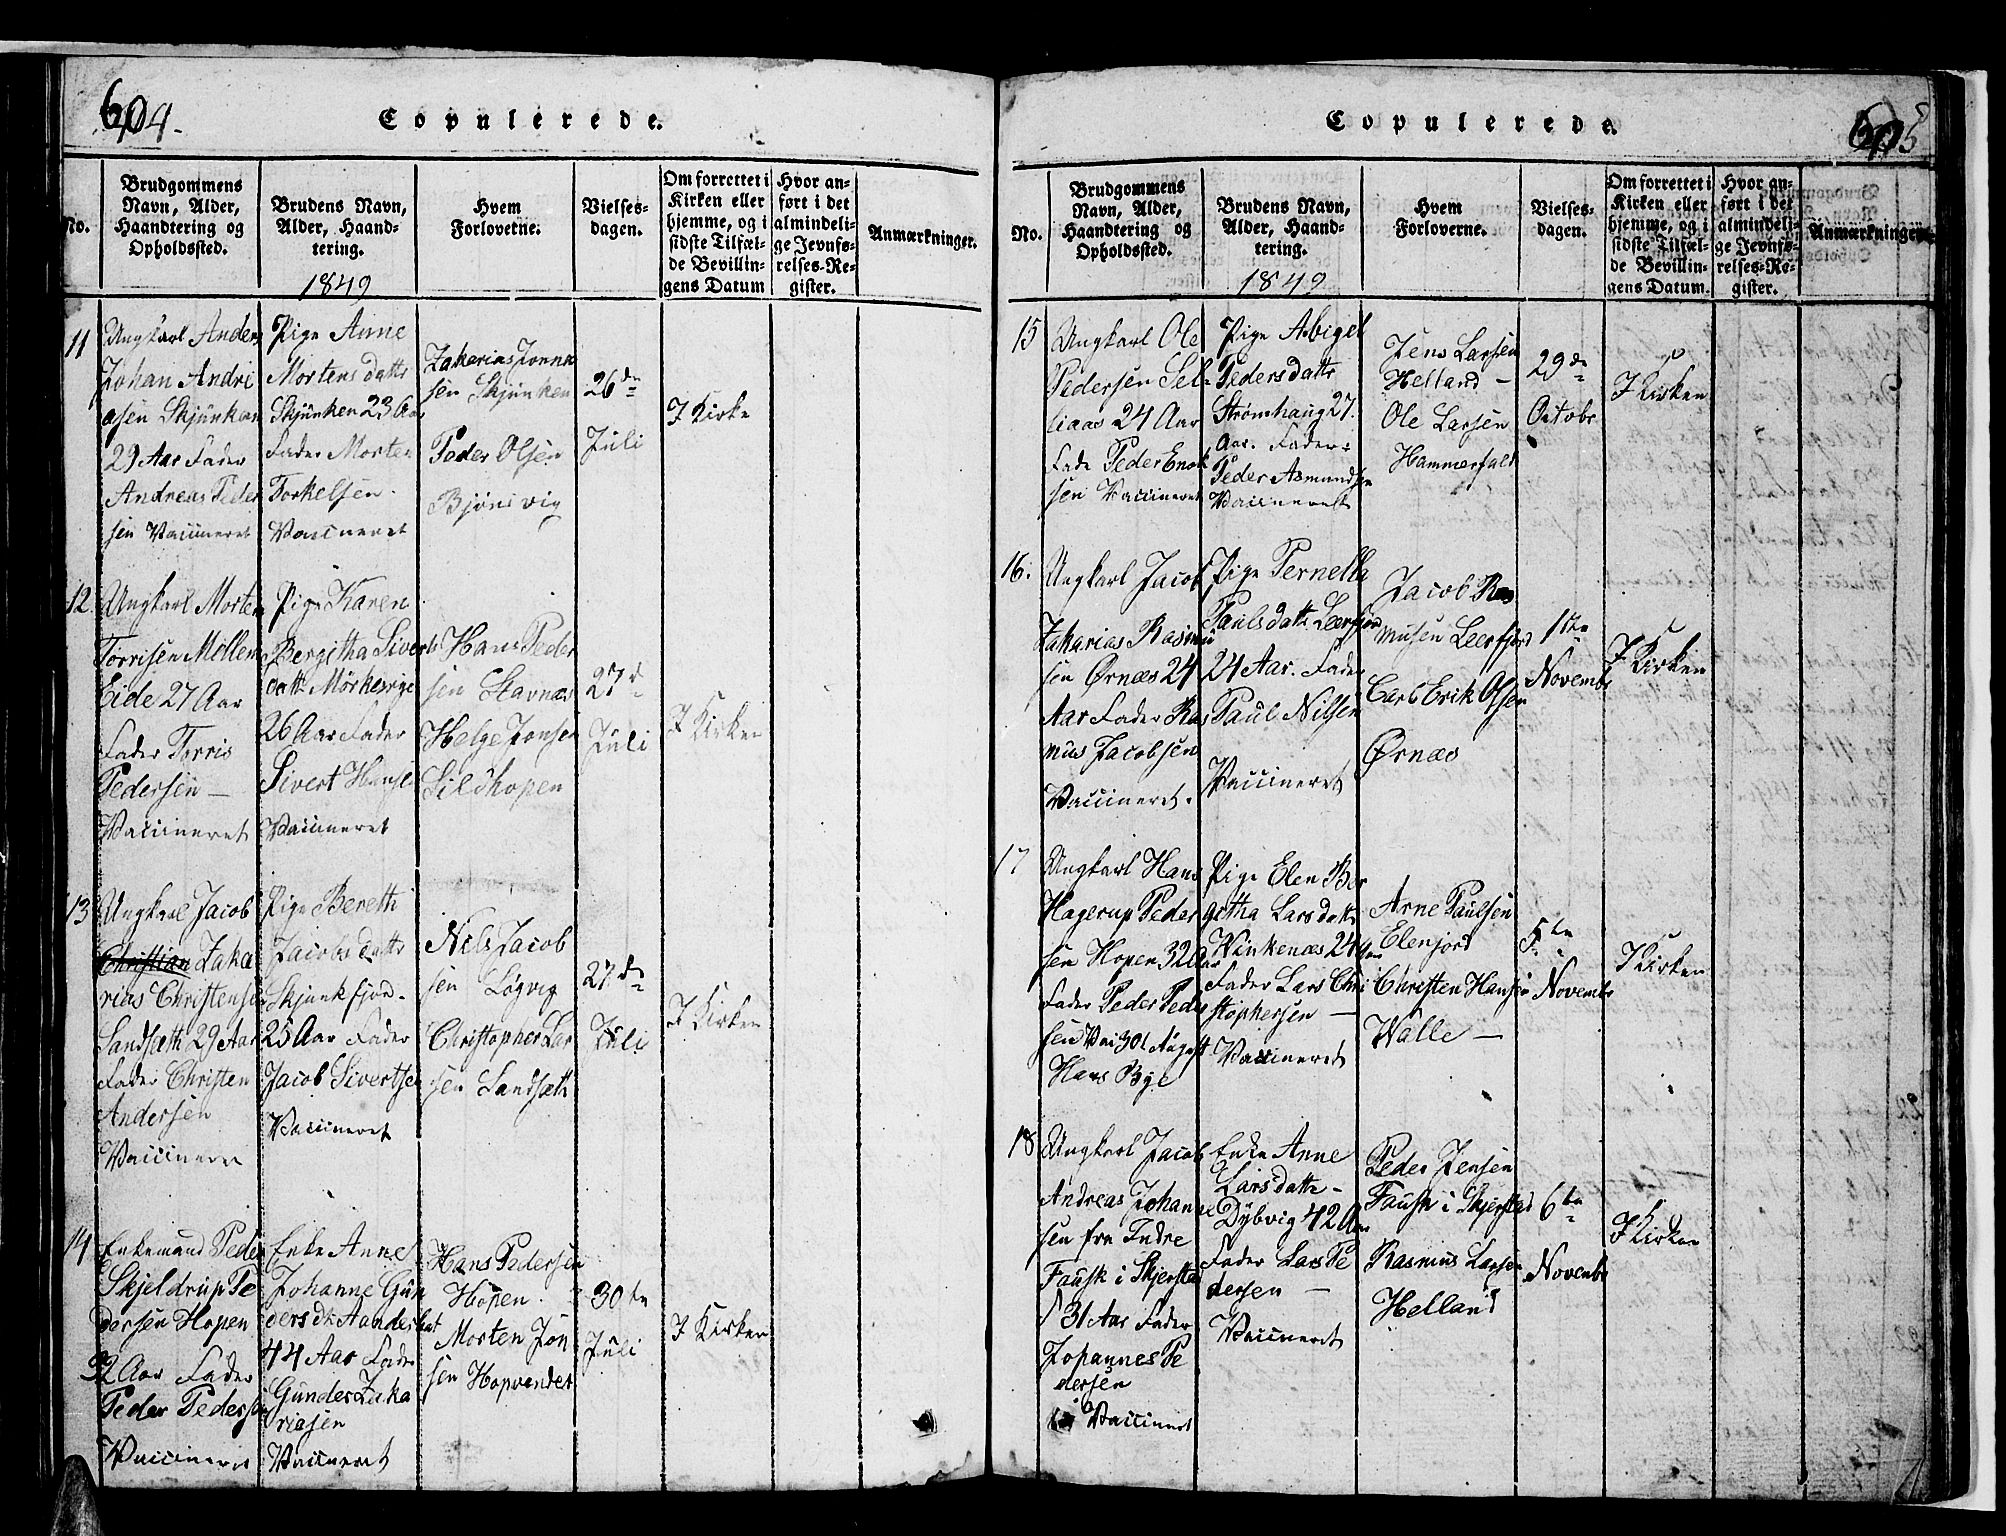 604.
Copulerede.
No.
Brudgommens
Navn, Alder,
Haandtering og
Opholdssted.
Brudens Navn,
Alder, Haand-
tering.
1849
Hvem
Forlovetne.
Vielses-
dagen.
Om forrettet i
Kirken eller
hjemme, og i
sidste Tilfæl-
de Bevillin-
gens Datum
Hvor an-
ført i det
almindeli-
ge Jevnfø-
relses-Re-
gister.
Anmærkninger.
11
Ungkarl Anders
Johan Andri
asen Skjunken
29 Aar Fader
Andreas Peder
sen Vaccineret
Pige Anne
Mortens datte
Skjunken 23 Aar
Fader Morten
Torkelsen.
Vaccineret
Zakarias Jonna
sen Skjunken
Peder Olsen
Bjørnsvig
26de
Juli
I Kirke
12
Ungkarl Morten
Torrisen Mellem
Eide 27 Aar
Fader Torris
Pedersen —
Vaccineret
Pige Karen
Bergitha Siverts
datte Mørkesvige
26 Aar Fader
Sivert Hansen
Vaccineret
Hans Peder
sen Stavnæs
Helge Jonsen
Sildhopen
27d
Juli
I Kirken
13
Ungkarl Jacob
Christian Zaka
rias Christensen
Sandsæth 29 Aar
Fader Christen
Andersen
Vaccineret
Pige Bereth
Jacobs datte
Skjunkfjord.
25 Aar Fader
Jacob Sivertsen
Vaccineret
Nils Jacob
sen Løgvig
Christopher Lar
sen Sandsæth
27de
Juli
I Kirken
14
Enkemand Peder
Skjeldrup Pe
dersen Hopen
32 Aar Fader
Peder Pedersen
Vaccineret
Enke Anne
Johanne Gün
dersdt
44 Aar Fader
Gunder Zaka
riasen
Vaccineret
Hans Pedersen
Hopen.
Morten Jon
sen Hopvandet
30te
Juli
I Kirken
605
Copulerede.
No.
Brudgommens
Navn, Alder,
Haandtering og
Opholdssted.
Brudens Navn,
Alder, Haand-
tering.
1849
Hvem
Forloverne.
Vielses-
dagen.
Om forrettet i
Kirken eller
hjemme, og i
sidste Tilfæl-
de Bevillin-
gens Datum.
Hvor an-
ført i det
almindeli-
ge Jevnfø-
relses-Re-
gister.
Anmærkninger.
15
Ungkarl Ole
Pedersen Sel-
liaas 24 Aar
Fade Peder Enok
sen Vaccineret
Pige Abigel
Pedersdatte
Strømhaug 27.
Aar. Fader:
Peder Asmundsen
Vaccineret
Jens Larsen
Helland —
Ole Larsen
Hammerfald
29de
Octobr
I Kirken
16.
Ungkarl Jacob
Zakarias Rasmu
sen Ørnæs 24
Aar Fader Ras
mus Jacobsen
Vaccineret.
Pige Pernella
Paulsdatte Leerfjord
24 Aar. Fader
Paul Nilsen
Vaccineret
Jacob Ras
musen Leerfjord
Carl Erik Olsen
Ørnæs
1ste
Novembr
I Kirken
17
Ungkarl Hans
Hagerup Peder
sen Hopen 32 Aar
Fader Peder Peder
sen Vac 30t August
Hans Bye
Pige Elen Ber
githa Larsdatte
Vinkenæs 24 Aar
Fader Lars Chri
stophersen —
Vaccineret
Arne Paulsen
Elenjord
Christen Hansen
Walle —
5te
Novembr
I Kirken
18
Ungkarl Jacob
Andreas Johanne
sen fra Indre
Fausk i Skjersta
d 31 Aar Fader
Johannes Pe
dersen
Vaccineret
Enke Anne
Larsdatte —
Dybvig 42 Aar
Fader Lars Pe
dersen —
Vaccineret
Peder Jensen
Fausk i Skjerstad
Rasmus Larsen
Helland
6te
Novembr
I Kirken